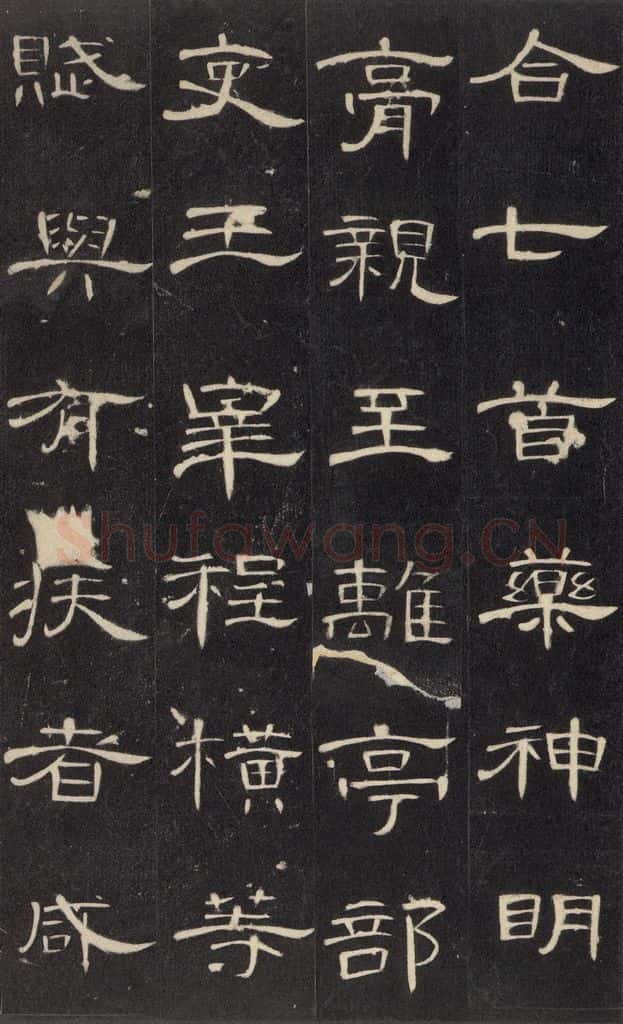 合七首藥神明
膏親至離亭部
吏王宰程橫等
賦與有疾者咸
Shufawang.CN